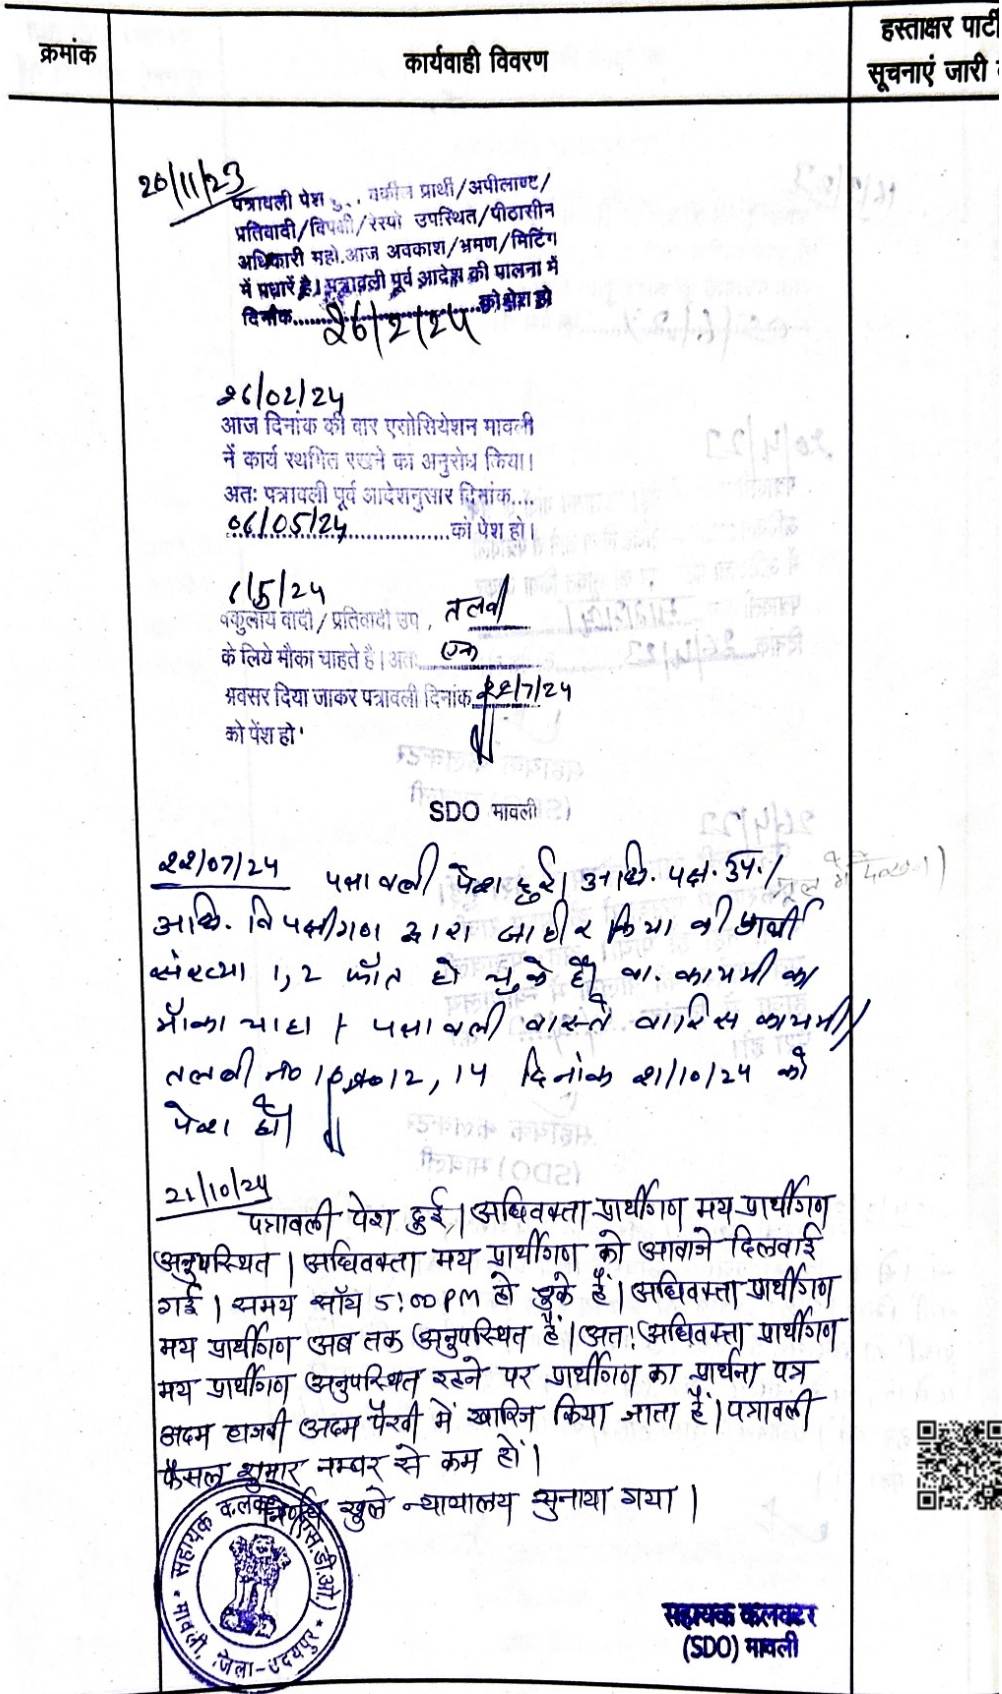 क्रमांक
कार्यवाही विवरण
हस्ताक्षर पार्टी
सूचनाएं जारी
20/11/23
पत्रावली पेश वकील प्रार्थी/अपीलाण्ट/
प्रतिवादी/विपक्षी/रेस्पो उपस्थित/पीठासीन
अधिकारी महो. आज अवकाश/भ्रमण/मिटिंग
में पधारें है। पत्रावली पूर्व आदेश की पालना में
दिनांक........26/2/24........को पेश हो
26/02/24
आज दिनांक की बार एसोसियेशन मावली
नें कार्य स्थगित रखने का अनुरोध किया।
अतः पत्रावली पूर्व आदेशनुसार दिनांक....
06/05/24..............को पेश हो।
6/5/24
वकुलाय वादी/प्रतिवादी उप. तलबी
के लिये मौका चाहते है। अतः एक
अवसर दिया जाकर पत्रावली दिनांक 22/7/24
को पेंश हो
SDO मावली
22/07/24 पत्रावली पेश हुई। अधि. पक्ष. उप./
अधि. विपक्षीगण द्वारा जाहीर किया की प्रार्थी
संख्या 1,2 फौत हो चुके है। वा. कायमी का
मौका चाहा। पत्रावली वास्ते वारिस कायमी/
तलबी नं० 12, 14 दिनांक 21/10/24 को
पेश हो।
21/10/24
पत्रावली पेश हुई। अधिवक्ता प्रार्थीगण मय प्रार्थीगण
अनुपस्थित। अधिवक्ता मय प्रार्थीगण को आवाजे दिलवाई
गई। समय सॉय 5:00 PM हो चुके हैं। अधिवक्ता प्रार्थीगण
मय प्रार्थीगण अब तक अनुपस्थित हैं। अतः अधिवक्ता प्रार्थीगण
मय प्रार्थीगण अनुपस्थित रहने पर प्रार्थीगण का प्रार्थना पत्र
अदम हाजरी अदम पैरवी में खारिज किया जाता हैं। पत्रावली
फैसल शुमार नम्बर से कम हों।
निर्णय खुले न्यायालय सुनाया गया।
सहायक कलक्टर (एस.डी.ओ.)
मावली, जिला-उदयपुर
सहायक कलक्टर
(SDO) मावली